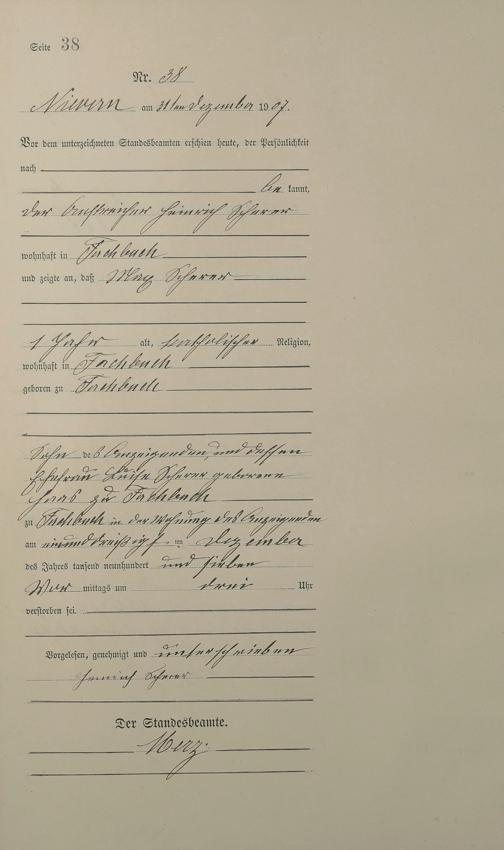 Seite 38
Nr. 38
Nievern am 31ten Dezember 1907.
Vor dem unterzeichneten Standesbeamten erschien heute, der Persönlichkeit
nach
be kannt,
der Anstreicher Heinrich Scherer
wohnhaft in Fachbach
und zeigte an, daß Max Scherer
1 Jahr alt, katholischer Religion,
wohnhaft in Fachbach
geboren zu Fachbach
Sohn des Anzeigenden, und dessen
Ehefrau Luise Scherer geborene
Haas zu Fachbach
zu Fachbach in der Wohnung des Anzeigenden
am einunddreißigst en Dezember
des Jahres tausend neunhundert und sieben
Vor mittags um drei Uhr
verstorben sei.
Vorgelesen, genehmigt und unterschrieben
Heinrich Scherer
Der Standesbeamte.
Merz.